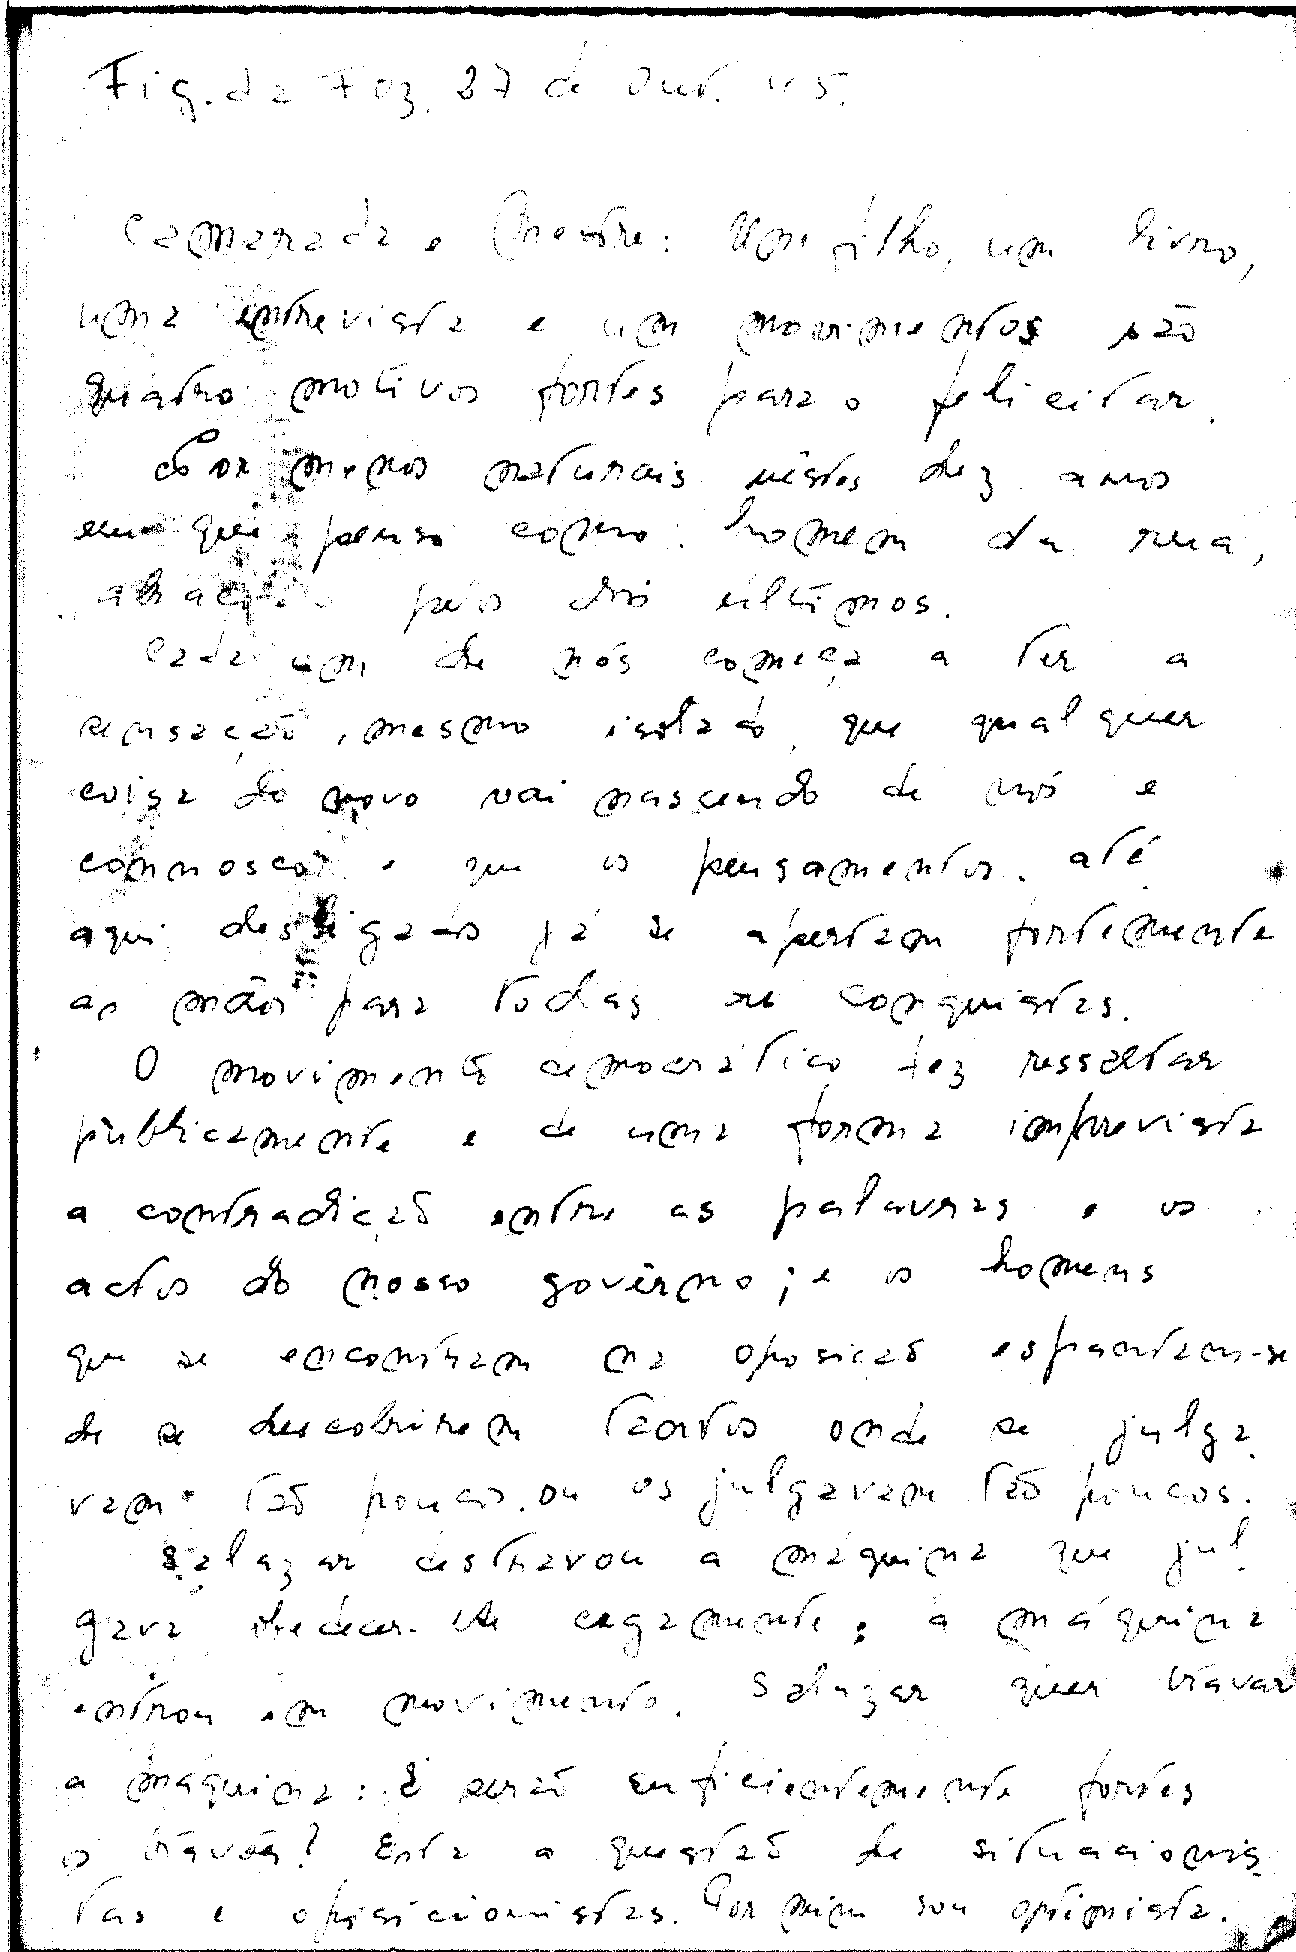 Fig. da Foz. 27 de Out. 45.
Camarada e Mestre: Um filho, um livro,
uma entrevista e um movimentos são
quatro motivos fortes para o felicitar.
Por menos naturais nêstes dez anos
em que penso como homem da rua,
abraço-o pelos dois últimos.
Cada um de nós começa a ter a
sensação, mesmo isolado, que qualquer
coisa de novo vai nascendo de nós e
connosco e que os pensamentos até
aqui desligados já se apertam fortemente
as mãos para todas as conquistas.
O movimento democrático fez ressaltar
públicamente e de uma forma imprevista
a contradição entre as palavras e os
actos do nosso govêrno; e os homens
que se encontram na oposição espantam-se
de se descobrirem tantos onde se julga
vam tão poucos. ou os julgavam tão poucos.
Salazar destravou a máquina que jul
gava obedecer-lhe cegamente; a máquina
entrou em movimento. Salazar quer travar
a máquina: E serão suficientemente fortes
os travões? Esta a questão de situacionis-
tas e oposicionistas. Por mim sou optimista.